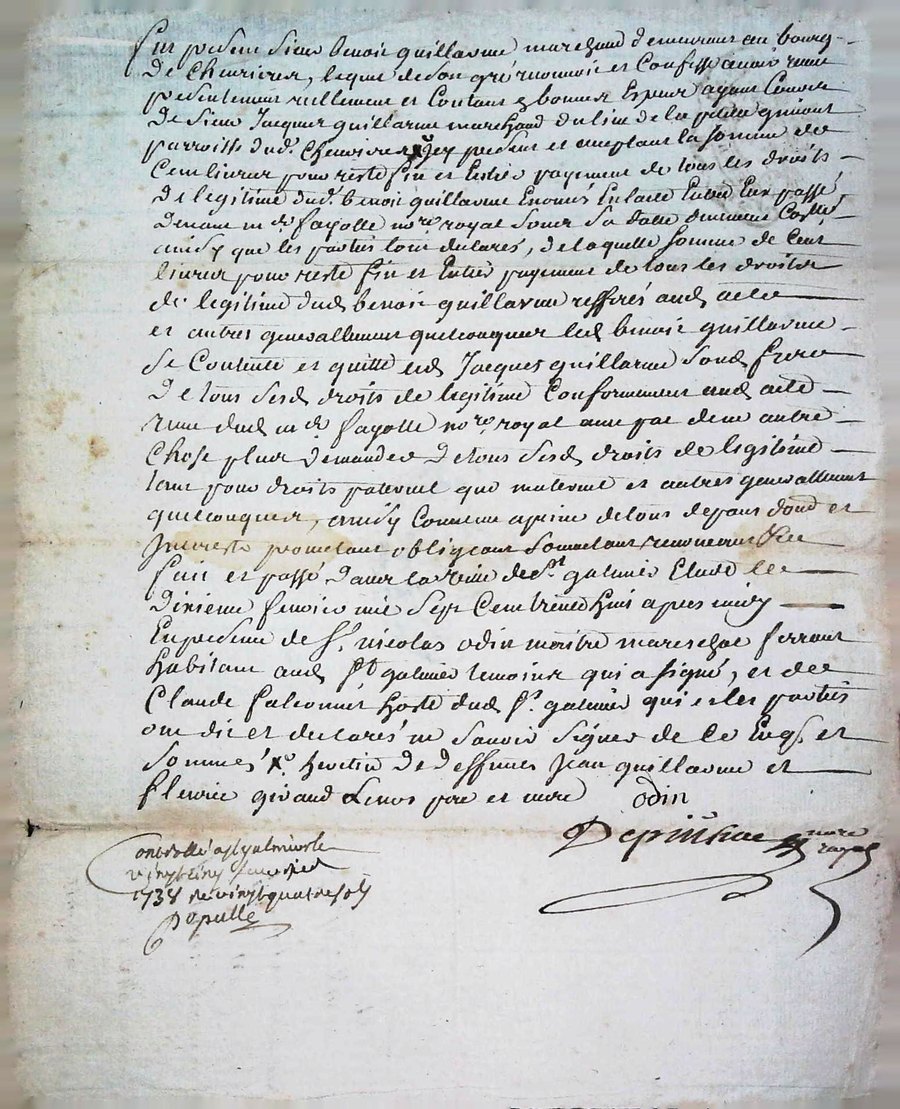 fut présent Sieur benoit guillaume marchand demeurant au bourg
de Chevrieres, lequel de son gré reconnoit et Confesse avoir reçu
présentement réellement et Contant en bonnes Espece ayant Cours
de Sieur Jacques guillarme marchand du lieu de la
parroisse dud. Chevrieres jcy présent et acceptant la somme de
Cent livres pour reste fin et Entier payement de tous les droits
de legitime dud. benoit guillarme Enoncés En lacte Entre Eux passé
devant me de fayolle nore royal sous sa datte
ainsy que les parties lont declarés, de laquelle somme de Cent
livres pour reste fin et Entier payement de tous les droits
de legitime dud benoit guillarme refferés aud acte
et autres generallement quelconques led benoit guillarme
se Contente et quitte led Jacques guillarme sond frere
de tous sesd droits de legitime Conformement aud acte
recue dud me de fayolle nore royal avec pac de ne autre
Chose plus demander de tous sesd droits de legitime
tant pour droits paternel que maternel et autres generallement
quelconques, ainsy Comme a peine de tous depans et
Interests promettant obligeant soumettant renonceant &ce
fait et passé dans la de St galmier Etude le
dixieme fevrier mil Sept Cent trente huit apres midy
En présence de Sr. nicolas odin maitre mareschal ferrant
habitant aud St galmier temoins qui a signé, et de
Claude falconnet hoste dud St. galmier qui et les parties
ont dit et declarés ne savoir signer de Ce Enqs. et
sommés heritier de deffunts Jean guillarme et
fleurie girand Leurs pere et mere odin
nore
royal
Controllé a St galmier le
vingt cinq fevrier
1738 vingt quatre sols
Populle